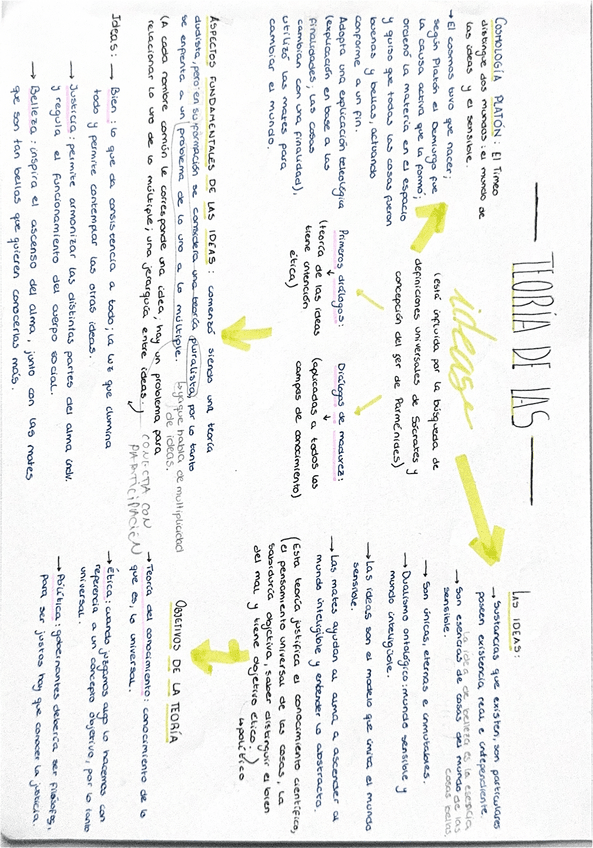 TEORÍA DE LAS
ideas
(está influida por la búsqueda de
definiciones universales de Sócrates y
concepción del ser de Parménides)
Primeros diálogos:
(teoría de las ideas
tiene intención
ética)
Diálogos de madurez:
(aplicadas a todos los
campos de conocimiento)
COSMOLOGÍA PLATÓN: El Timeo
distingue dos mundos: el mundo de
las ideas y el sensible.
→ El cosmos tuvo que nacer;
según Platón el Demiurgo fue
la causa activa que la formó;
ordenó la materia en el espacio
y quiso que todas las cosas fueran
buenas y bellas, actuando
conforme a un fin.
Adopta una explicación teleológica
(explicación en base a las
finalidades; las cosas
cambian con una finalidad),
utilizó las mates para
cambiar el mundo.
LAS IDEAS:
→ Sustancias que existen, son particulares
poseen existencia real e independiente.
la idea de belleza es la esencia
de las cosas bellas
→ Son esencias de cosas del mundo
sensible.
→ Son únicas, eternas e inmutables.
→ Dualismo ontológico: mundo sensible y
mundo inteligible.
→ Las ideas son el modelo que imita el mundo
sensible.
→ Las mates ayudan al alma a ascender al
mundo inteligible y entender lo abstracto.
(Esta teoría justifica el conocimiento científico,
el pensamiento universal de las cosas, la
sabiduría objetiva, saber distinguir el bien
del mal y tiene objetivo ético.)
político
ASPECTOS FUNDAMENTALES DE LAS IDEAS: comenzó siendo una teoría
dualista, pero en su formación se considera una teoría pluralista, por lo tanto
se enfrenta a un problema de lo uno a lo múltiple.
ya que habla de multiplicidad
de ideas.
(A cada nombre común le corresponde una idea; hay un problema para
relacionar lo uno de lo múltiple; una jerarquía entre ideas.)
CONECTA CON
PARTICIPACIÓN
Ideas: → Bien: lo que da consistencia a todo; la luz que ilumina
todo y permite contemplar las otras ideas.
→ Justicia: permite armonizar las distintas partes del alma indv.
y regula el funcionamiento del cuerpo social.
→ Belleza: inspira el ascenso del alma, junto con las mates
que son tan bellas que quieren conocerlas más.
OBJETIVOS DE LA TEORÍA
→ Teoría del conocimiento: conocimiento de lo
que es, lo universal.
→ Ética: cuando juzgamos algo lo hacemos con
referencia a un concepto objetivo, por lo tanto
universal.
→ Política: gobernantes debería ser filósofos,
para ser justos hay que conocer la justicia.